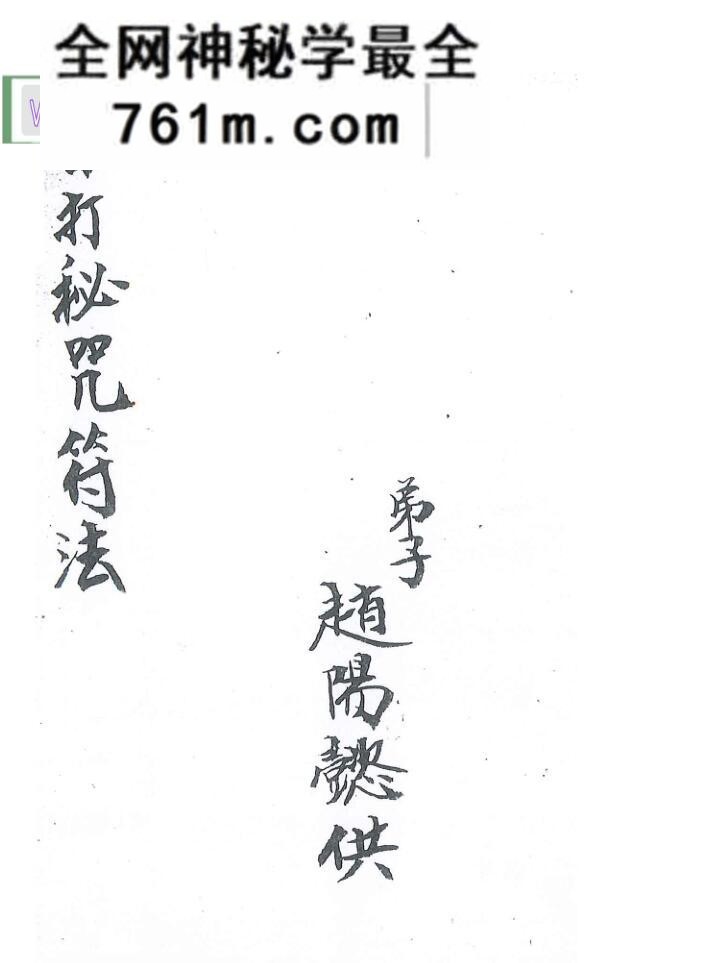 全网神秘学最全
761m.com
弟子
趙陽懿供
打秘咒符法